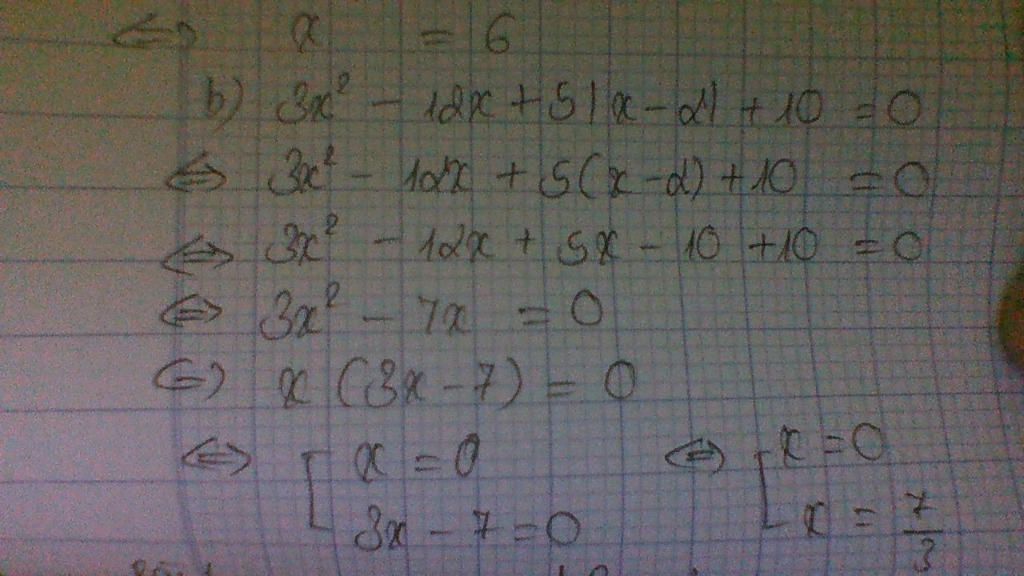 ⇔ x = 6
b) 3x² - 12x + 5|x - 2| + 10 = 0
⇔ 3x² - 12x + 5(x - 2) + 10 = 0
⇔ 3x² - 12x + 5x - 10 + 10 = 0
⇔ 3x² - 7x = 0
⇔ x (3x - 7) = 0
⇔ [ x = 0 ⇔ [ x = 0
3x - 7 = 0 x = 7/3